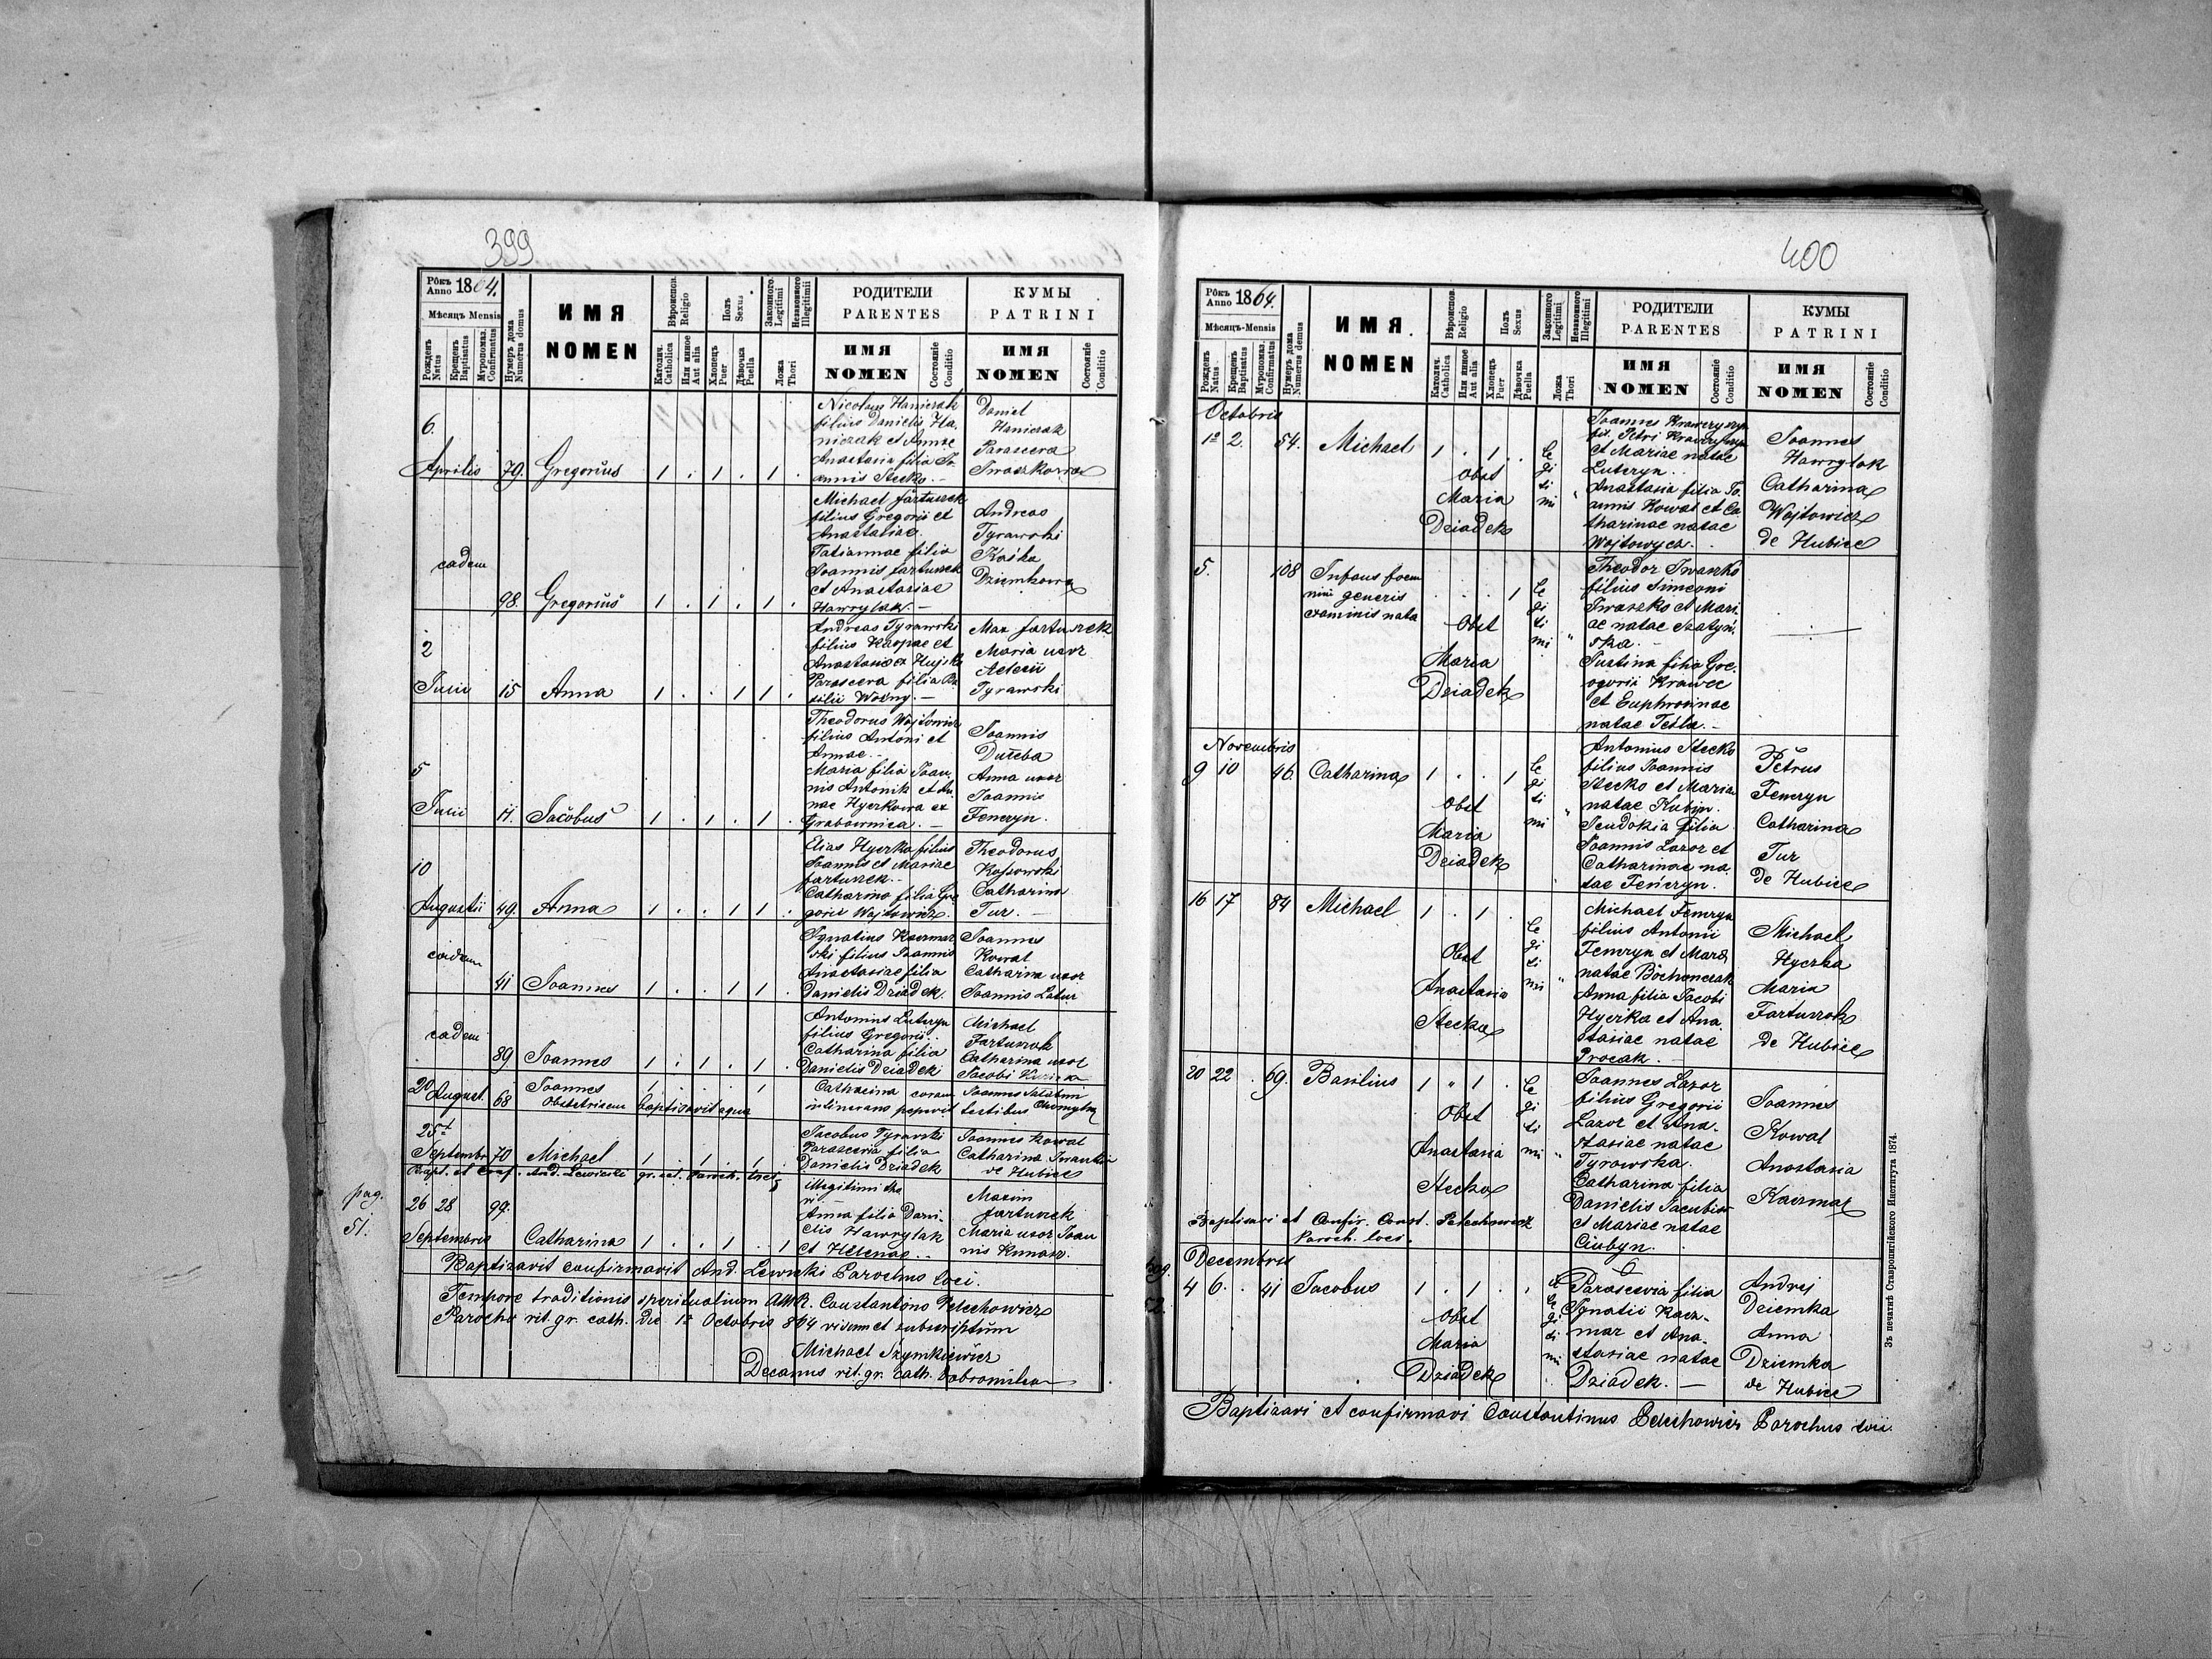 399
Рôкъ Anno 1864.
Мѣсяць Mensis
Рожденъ Natus
Крещенъ Baptisatus
Муропомаз. Confirmatus
Нумеръ дома Numerus domus
ИМЯ
NOMEN
Вѣроиспов. Religio
Католич. Catholica
Или иное Aut alia
Полъ Sexus
Хлопець Puer
Дѣвочка Puella
Законного Legitimi
Незаконного Illegitimii
Ложа Thori
РОДИТЕЛИ
PARENTES
ИМЯ
NOMEN
Состояніе Conditio
КУМЫ
PATRINI
ИМЯ
NOMEN
Состояніе Conditio
6.
Aprilis 79. Gregorius 1 . 1 . 1 .
Nicolaus Haniczak
filius Danielis Ha-
niczak et Annae
Anastasia filia Jo-
annis Stecko. —
Daniel
Haniczak
Parascera
Iwaszkowa
eadem
98. Gregorius 1 . 1 . 1 .
Michael fartuszek
filius Gregorii et
Anastasiae.
Tatiannae filia
Joannis fartuszek
et Anastasiae
Hawrylak. —
Andreas
Tyrawski
Kaśka
Dziemkowa
2
Julii 15 Anna 1 . . 1 1 .
Andreas Tyrawski
filius Kaspae et
Anastasia ex Hujsko
Parascera filia Ba-
silii Woźny. —
Max fartuszek
Maria uxor
Alexii
Tyrawski
5
Julii 11. Jacobus 1 . 1 . 1 .
Theodorus Wojtowicz
filius Antoni et
Annae.
Maria filia Joan-
nis Antonik et An-
nae Hyerkowa ex
Grabownica. —
Joannis
Duleba
Anna uxor
Joannis
Femryn.
10
Augustii 49. Anna 1 . . 1 1 .
Elias Hyerka filius
Joannis et Mariae
fartuszek. —
Catharina filia Gre-
gorii Wojtowicz.
Theodorus
Kossowski
Catharina
Tur. —
eadem
41 Joannes 1 . . 1 1 .
Ignatius Kaermar-
ski filius Joannis
Anastasiae filia
Danielis Dziadek.
Joannes
Kowal
Catharina uxor
Joannis Latur
eadem
89. Joannes 1 . 1 . 1 .
Antonius Luteryn
filius Gregorii.
Catharina filia
Danielis Dziadek
Michael
Fartuszek
Catharina uxor
Jacobi
20 August. 68 Joannes 1 . . . 1
Obstetricem baptisavit aqua
Catharina coram
itinerans peperit testibus
Joannes
25t
Septembr 70 Michael 1 . 1 . 1
Jacobus Tyrawski
Parascevia filia
Danielis Dziadek
Joannes Kowal
Catharina
de Hubice
Bapt. et Conf. And. Lewicki gr. cat. Paroch. loci
pag.
51.
26 28 99.
Septembris Catharina 1 . . 1 . 1
illegitimi tho
ri
Anna filia Dani-
elis Hawrylak
et Helenae. —
Maxim
fartuszek
Maria uxor Joan
nis Kunasz.
Baptizavit confirmavit And. Lewicki Parochus loci.
Tempore traditionis spiritualium AMR. Constantino Pelechowicz
Parocho rit. gr. cath. die 1a Octobris 864 visum et subscriptum
Michael Szymkiewicz
Decanus rit. gr. cath. Dobromilien
400
Рôкъ Anno 1864.
Мѣсяць-Mensis
Рожденъ Natus
Крещенъ Baptisatus
Муропомаз. Confirmatus
Нумеръ дома Numerus domus
ИМЯ
NOMEN
Вѣроиспов. Religio
Католич. Catholica
Или иное Aut alia
Полъ Sexus
Хлопець Puer
Дѣвочка Puella
Законного Legitimi
Незаконного Illegitimi
Ложа Thori
РОДИТЕЛИ
PARENTES
ИМЯ
NOMEN
Состояніе Conditio
КУМЫ
PATRINI
ИМЯ
NOMEN
Состояніе Conditio
Octobris
1a 2. 54. Michael 1 . 1 . .
Obst
Maria
Dziadek
le
gi
ti
mi "
Joannes
fil. Petri
et Mariae natae
Luteryn. .
Anastasia filia Jo-
annis Kowal et Ca-
tharinae natae
Wojtowycz.
Joannes
Hawrylak
Catharina
Wojtowicz
de Hubice
5. 108 Infans foem-
nini generis
examinis nata
. . . 1
Obst
Maria
Dziadek
le
gi
ti
mi "
Theodor Iwaszko
filius Simeoni
Iwaszko et Mari-
ae natae Szatyń-
ska. —
Justina filia Gre-
ogorii Krawec
et Euphrosinae
natae Tesla. —
Novembris
9 10 46. Catharina 1 . . 1
Obst
Maria
Dziadek
le
gi
ti
mi "
Antonius Stecko
filius Joannis
Stecko et Maria
natae Kubyn.
Jeudokia filia
Joannis Lazor et
Catharinae na-
tae Femryn.
Petrus
Femryn
Catharina
Tur
de Hubice
16 17 84 Michael 1 . 1 .
Obst
Anastasia
Stecko
le
gi
ti
mi "
Michael Femryn
filius Antonii
Femryn et Maria
natae Bochonczak
Anna filia Jacobi
Hyerka et Ana-
stasiae natae
Procak. —
Michael
Hyczka
Maria
Fartuszok
de Hubice
20 22 . 69. Basilius 1 " 1 .
Obst
Anastasia
Stecko
le
gi
ti
mi "
Joannes Lazor
filius Gregorii
Lazor et Ana-
stasiae natae
Tyrowska.
Catharina filia
Danielis Jacubiw
et Mariae natae
Ciubyn.
Joannes
Kowal
Anastasia
Kaczmar
Baptisavi et Confir. Const. Pelechowicz
Paroch. loci.
pag.
52.
Decembris
4 6. . 41 Jacobus 1 . 1 . .
Obst
Maria
Dziadek
il
le
gi
ti
mi
Parascevia filia
Ignatii Kacz-
mar et Ana-
stasiae natae
Dziadek. —
Andrej
Dziemka
Anna
Dziemka
de Hubice
Baptizavi et confirmavi Constantinus Pelechowicz Parochus loci.
Зъ печатнѣ Ставропигійского Института 1874.